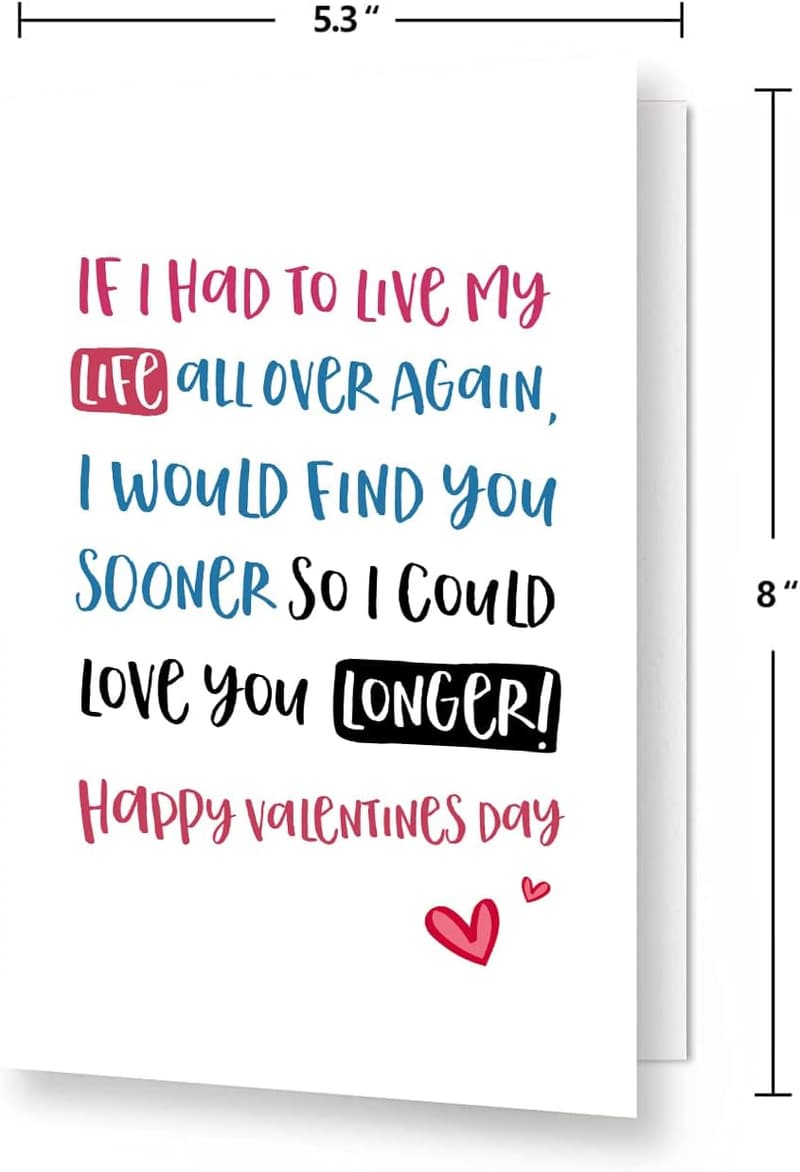 5.3 “
IF I HAD TO LIVE MY
LIFE ALL OVER AGAIN,
I WOULD FIND YOU
SOONER SO I COULD
LOVE YOU LONGER!
HAPPY VALENTINES DAY
8 “